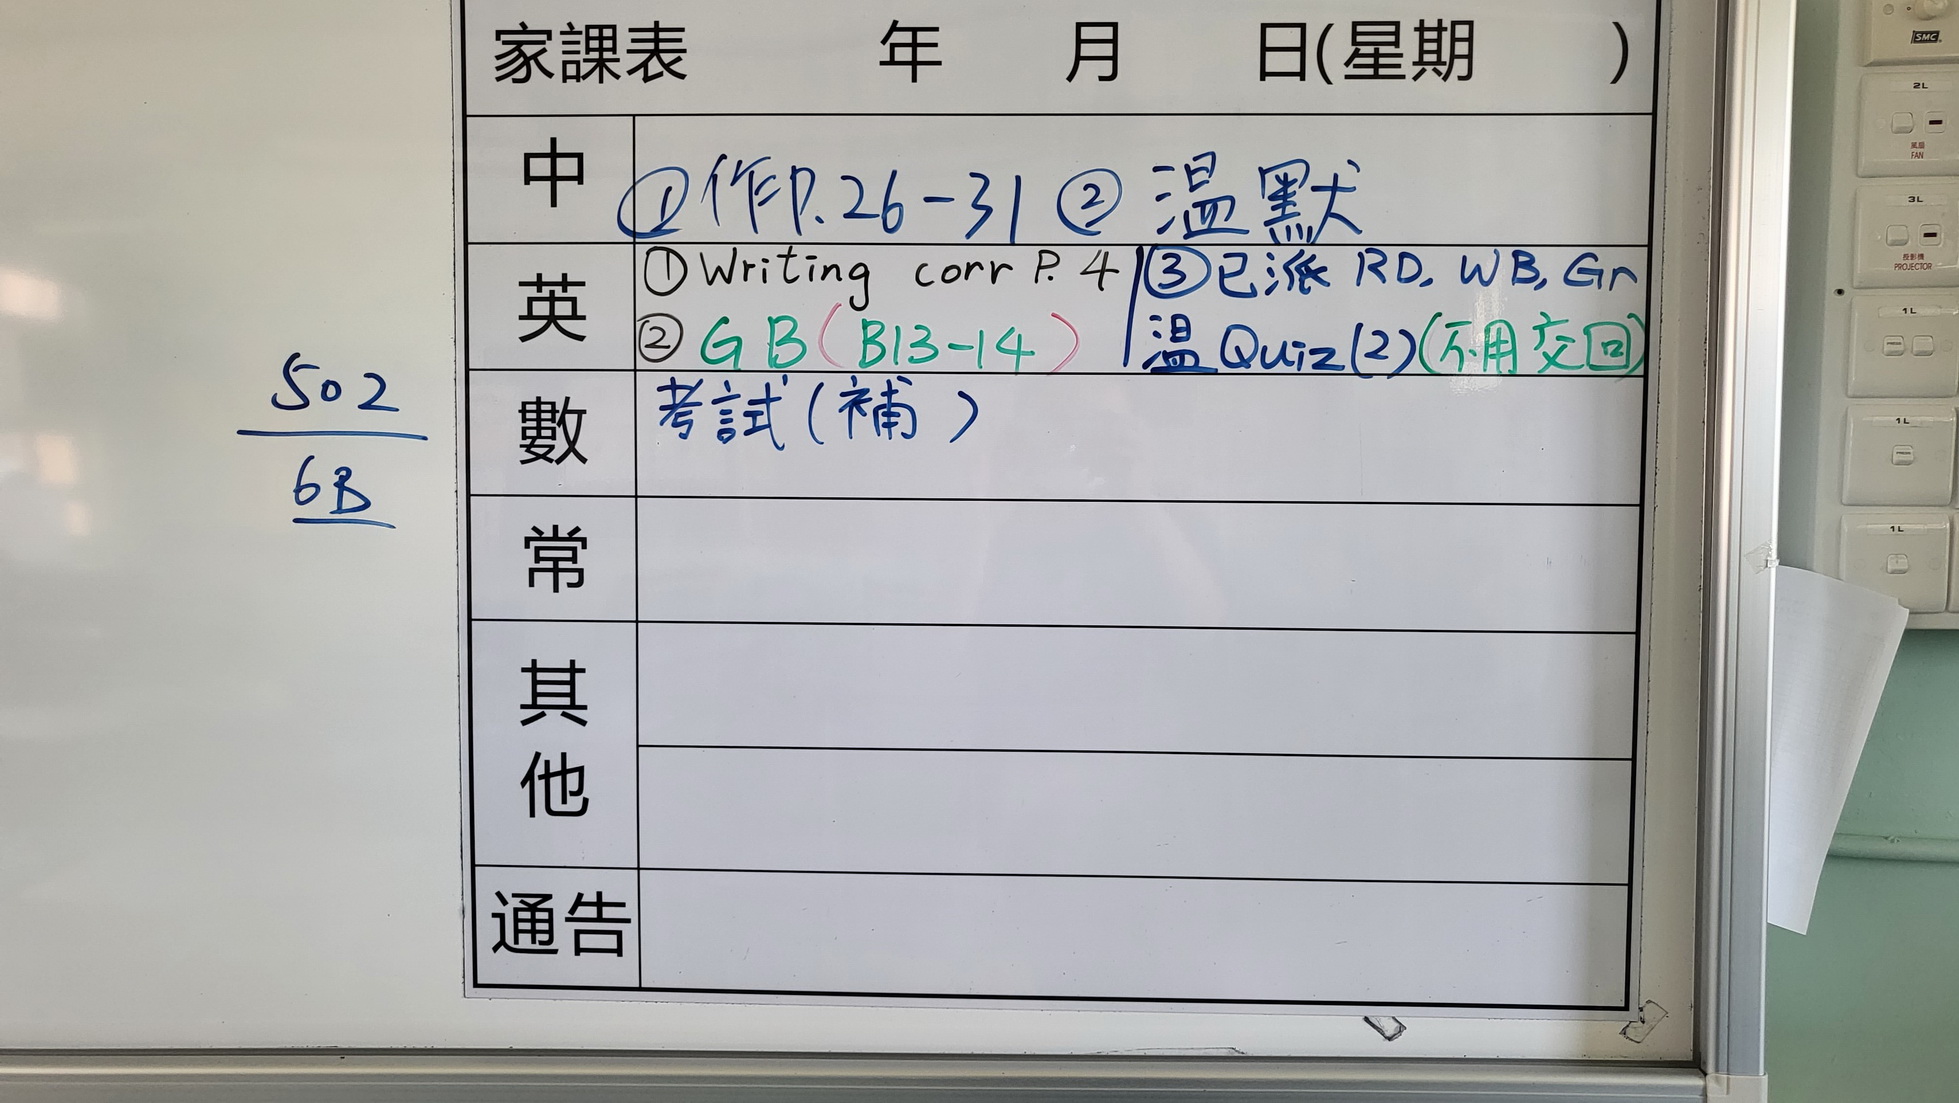 家課表 年 月 日(星期 )
中
①作P.26-31 ② 溫默
英
① Writing corr P. 4
② GB(B13-14)
③已派 RD, WB, Gr
溫Quiz(2)(不用交回)
數
考試(補)
常
其他
通告
502
6B
SMC
2L
風扇
FAN
3L
投影機
PROJECTOR
1L
1L
1L